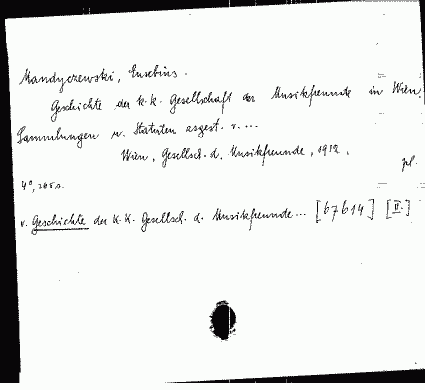 Mandyczewski, Eusebius.
Geschichte der k.k. Gesellschaft der Musikfreunde in Wien.
Sammlungen u. Statuten zsgest. v. ...
Wien, Gesellsch. d. Musikfreunde, 1912.
pl.
4°, 205 s.
v. Geschichte der K.K. Gesellsch. d. Musikfreunde... [67614] [II.]